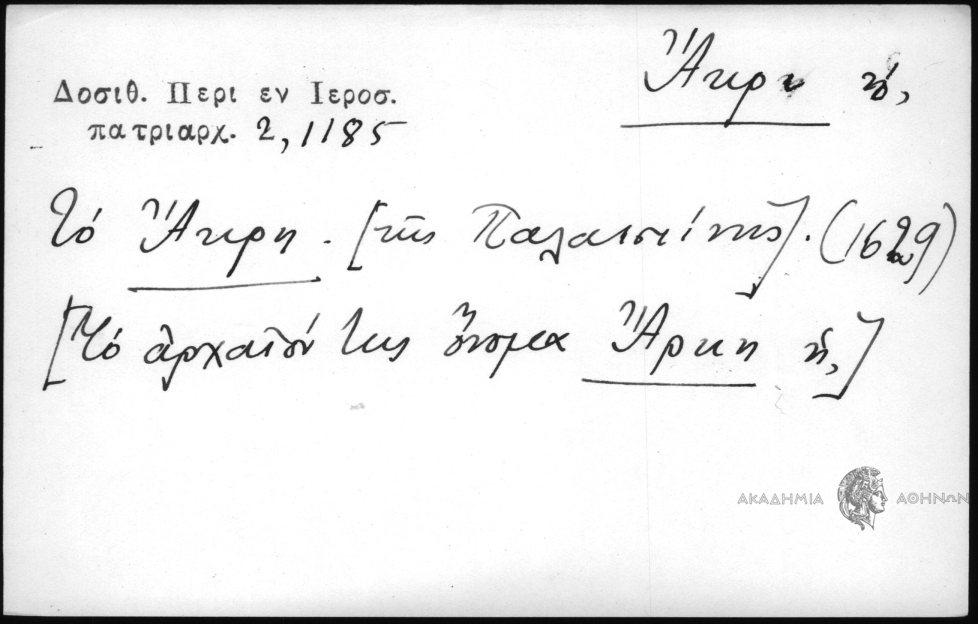 Ἄκρι τό,
Δοσιθ. Περι εν Ιεροσ.
πατριαρχ. 2, 1185
τό Ἄκρη. [τῆς Παλαιστίνης]. (1629)
[τό ἀρχαῖόν της ὄνομα Ἄρκη ἡ,]
ΑΚΑΔΗΜΙΑ ΑΘΗΝΩΝ